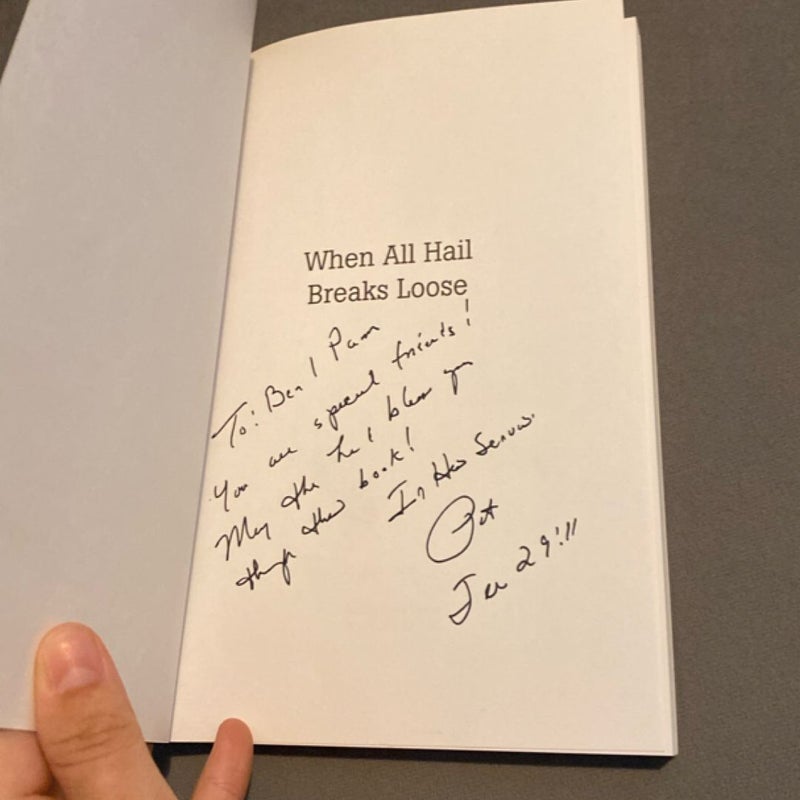 When All Hail
Breaks Loose
To: Ben & Pam
You are special friends!
May the bless you
this book!
In His Service
Pat
Jan 29 '11